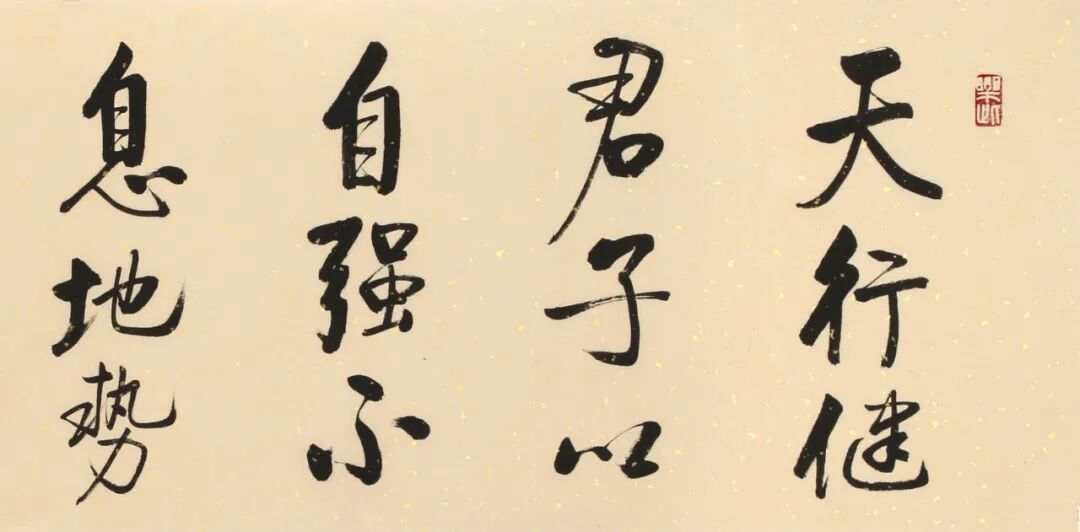 天行健
君子以
自强不
息地势